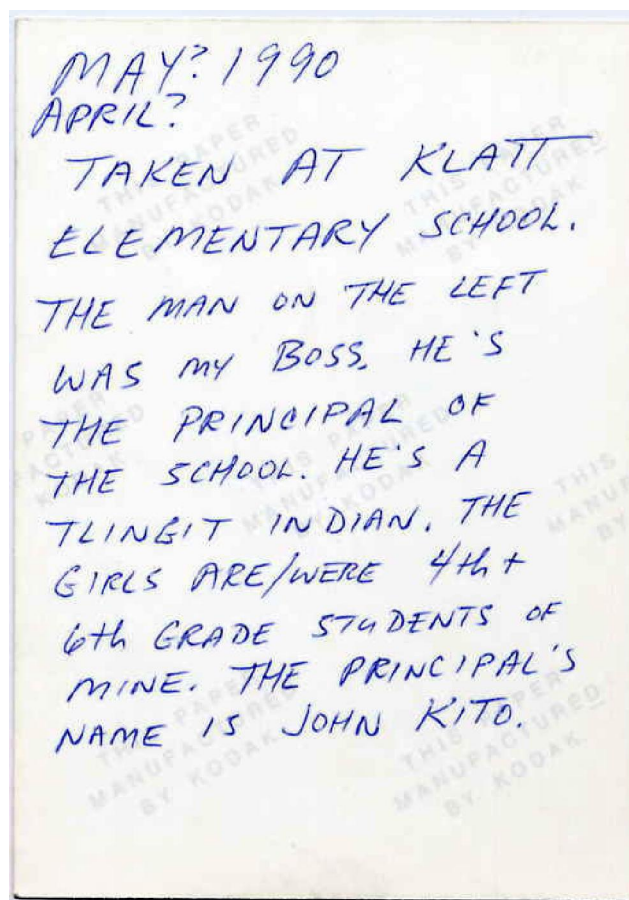 MAY? 1990
APRIL?
TAKEN AT KLATT
ELEMENTARY SCHOOL.
THE MAN ON THE LEFT
WAS MY BOSS. HE'S
THE PRINCIPAL OF
THE SCHOOL. HE'S A
TLINGIT INDIAN. THE
GIRLS ARE/WERE 4th +
6th GRADE STUDENTS OF
MINE. THE PRINCIPAL'S
NAME IS JOHN KITO.
THIS PAPER
MANUFACTURED
BY KODAK